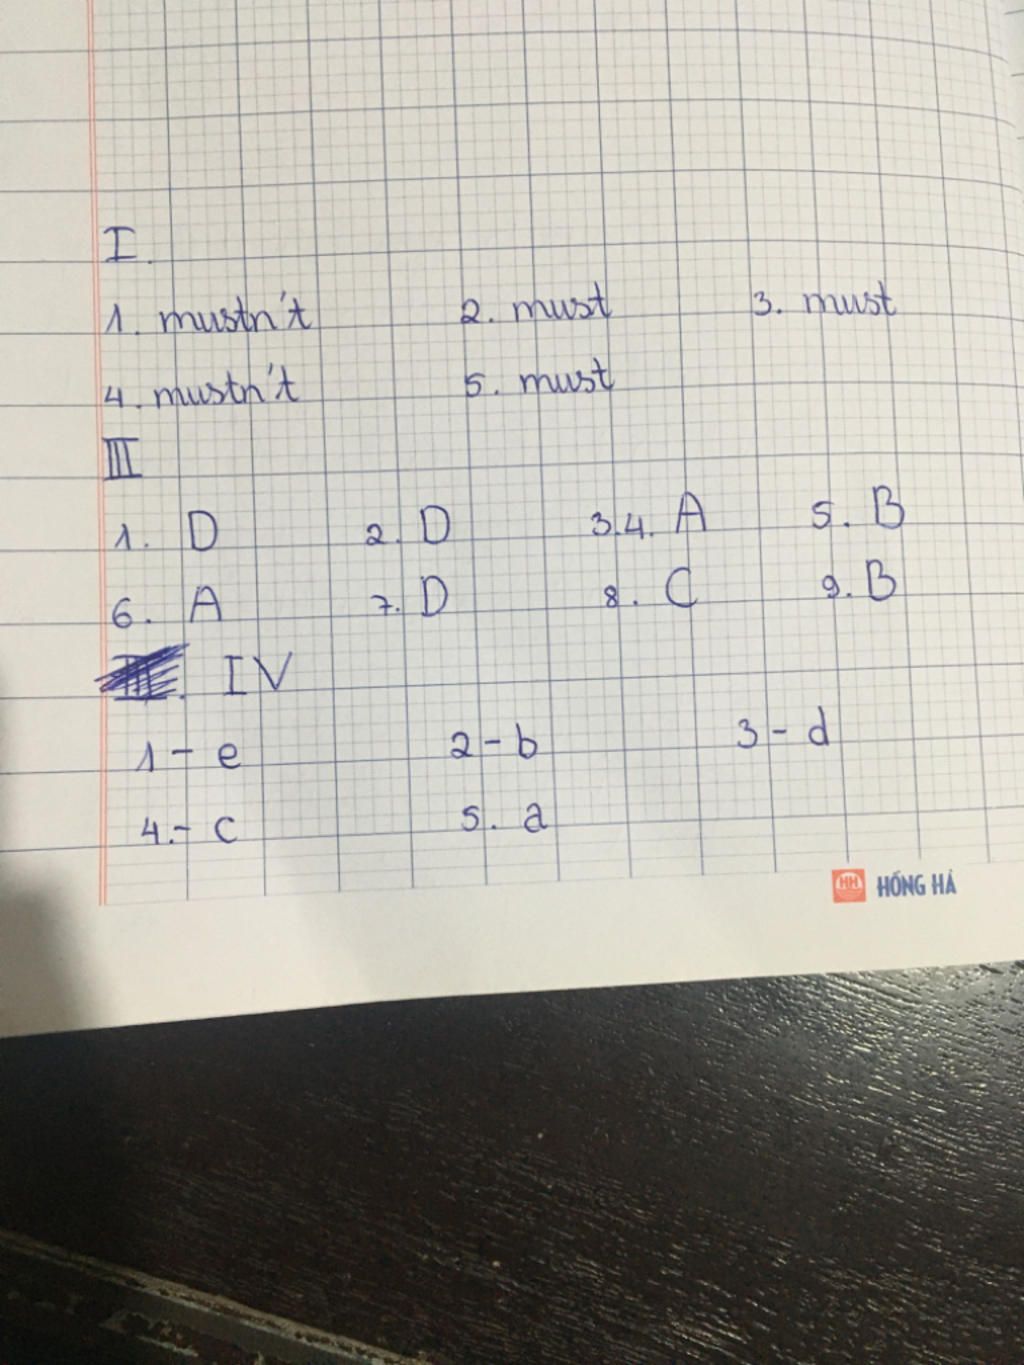 I.
1. mustn't 2. must 3. must
4. mustn't 5. must
III
1. D 2. D 3.4. A 5. B
6. A 7. D 8. C 9. B
IV
1 - e 2 - b 3 - d
4. - c 5. a
HH HỒNG HÀ